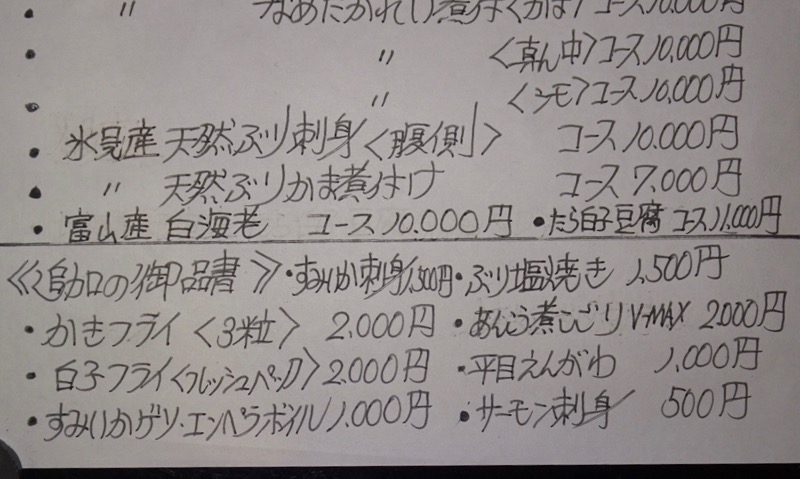 • 〃 なめたがれい煮付〈かま〉コース10.000円
• 〃 〈真ん中〉コース10.000円
• 〃 〈シモ〉コース10.000円
• 氷見産 天然ぶり刺身〈腹側〉 コース10.000円
• 〃 天然ぶりかま煮付け コース7.000円
• 富山産 白海老 コース10.000円 •たら白子豆腐 コース11.000円
《追加の御品書》•すみいか刺身1,500円•ぶり塩焼き 1,500円
•かきフライ〈3粒〉 2.000円 •あんこう煮こごりV-MAX 2000円
•白子フライ〈フレッシュパック〉2.000円 •平目えんがわ 1.000円
•すみいかゲソ・エンペラボイル1.000円 •サーモン刺身 500円